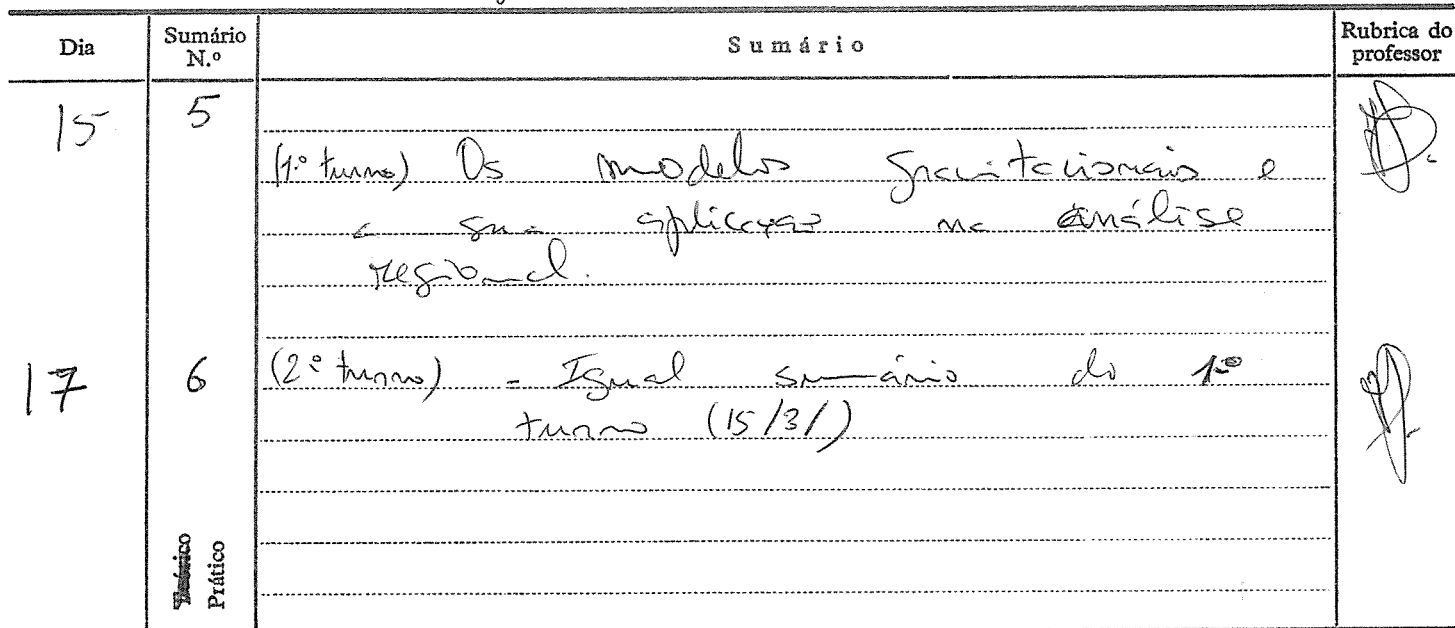 Dia Sumário N.º Sumário Rubrica do professor
15 5
(1º turno) Os modelos gravitacionais e
a sua aplicação na análise
regional.
17 6 (2º turno) - Igual sumário do 1º
turno (15/3/)
Teórico
Prático